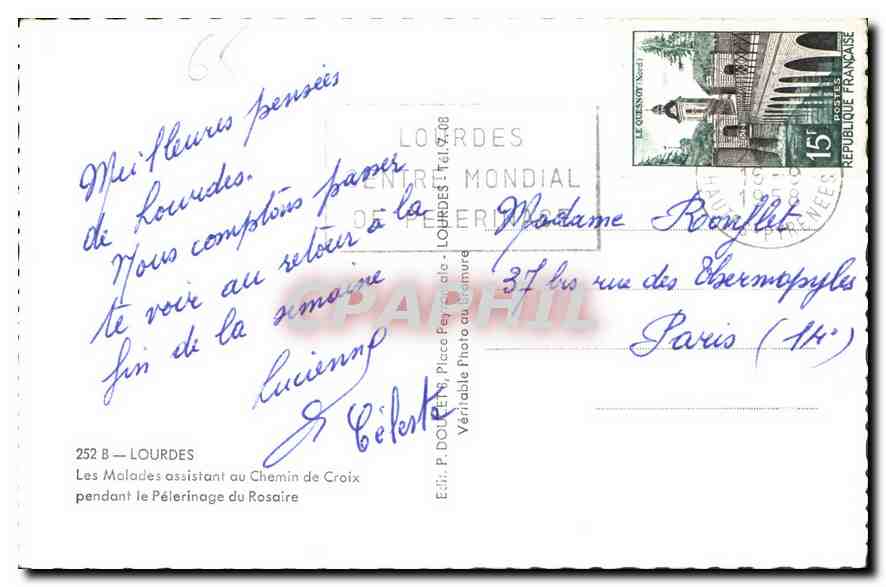 Meilleures pensées
de Lourdes.
Nous comptons passer
te voir au retour à la
fin de la semaine
Lucienne
& Céleste
252 B — LOURDES
Les Malades assistant au Chemin de Croix
pendant le Pélerinage du Rosaire
Edit. P. DOUCET 8, Place Peyramale - LOURDES - Tél. 7.08
Véritable Photo au Bromure
LOURDES
CENTRE MONDIAL
DE PELERINAGE
LE QUESNOY (Nord)
15F
POSTES
REPUBLIQUE FRANÇAISE
PYRENEES
Madame Ronflet
37 bis rue des Thermopyles
Paris (14e)
CPAPHIL